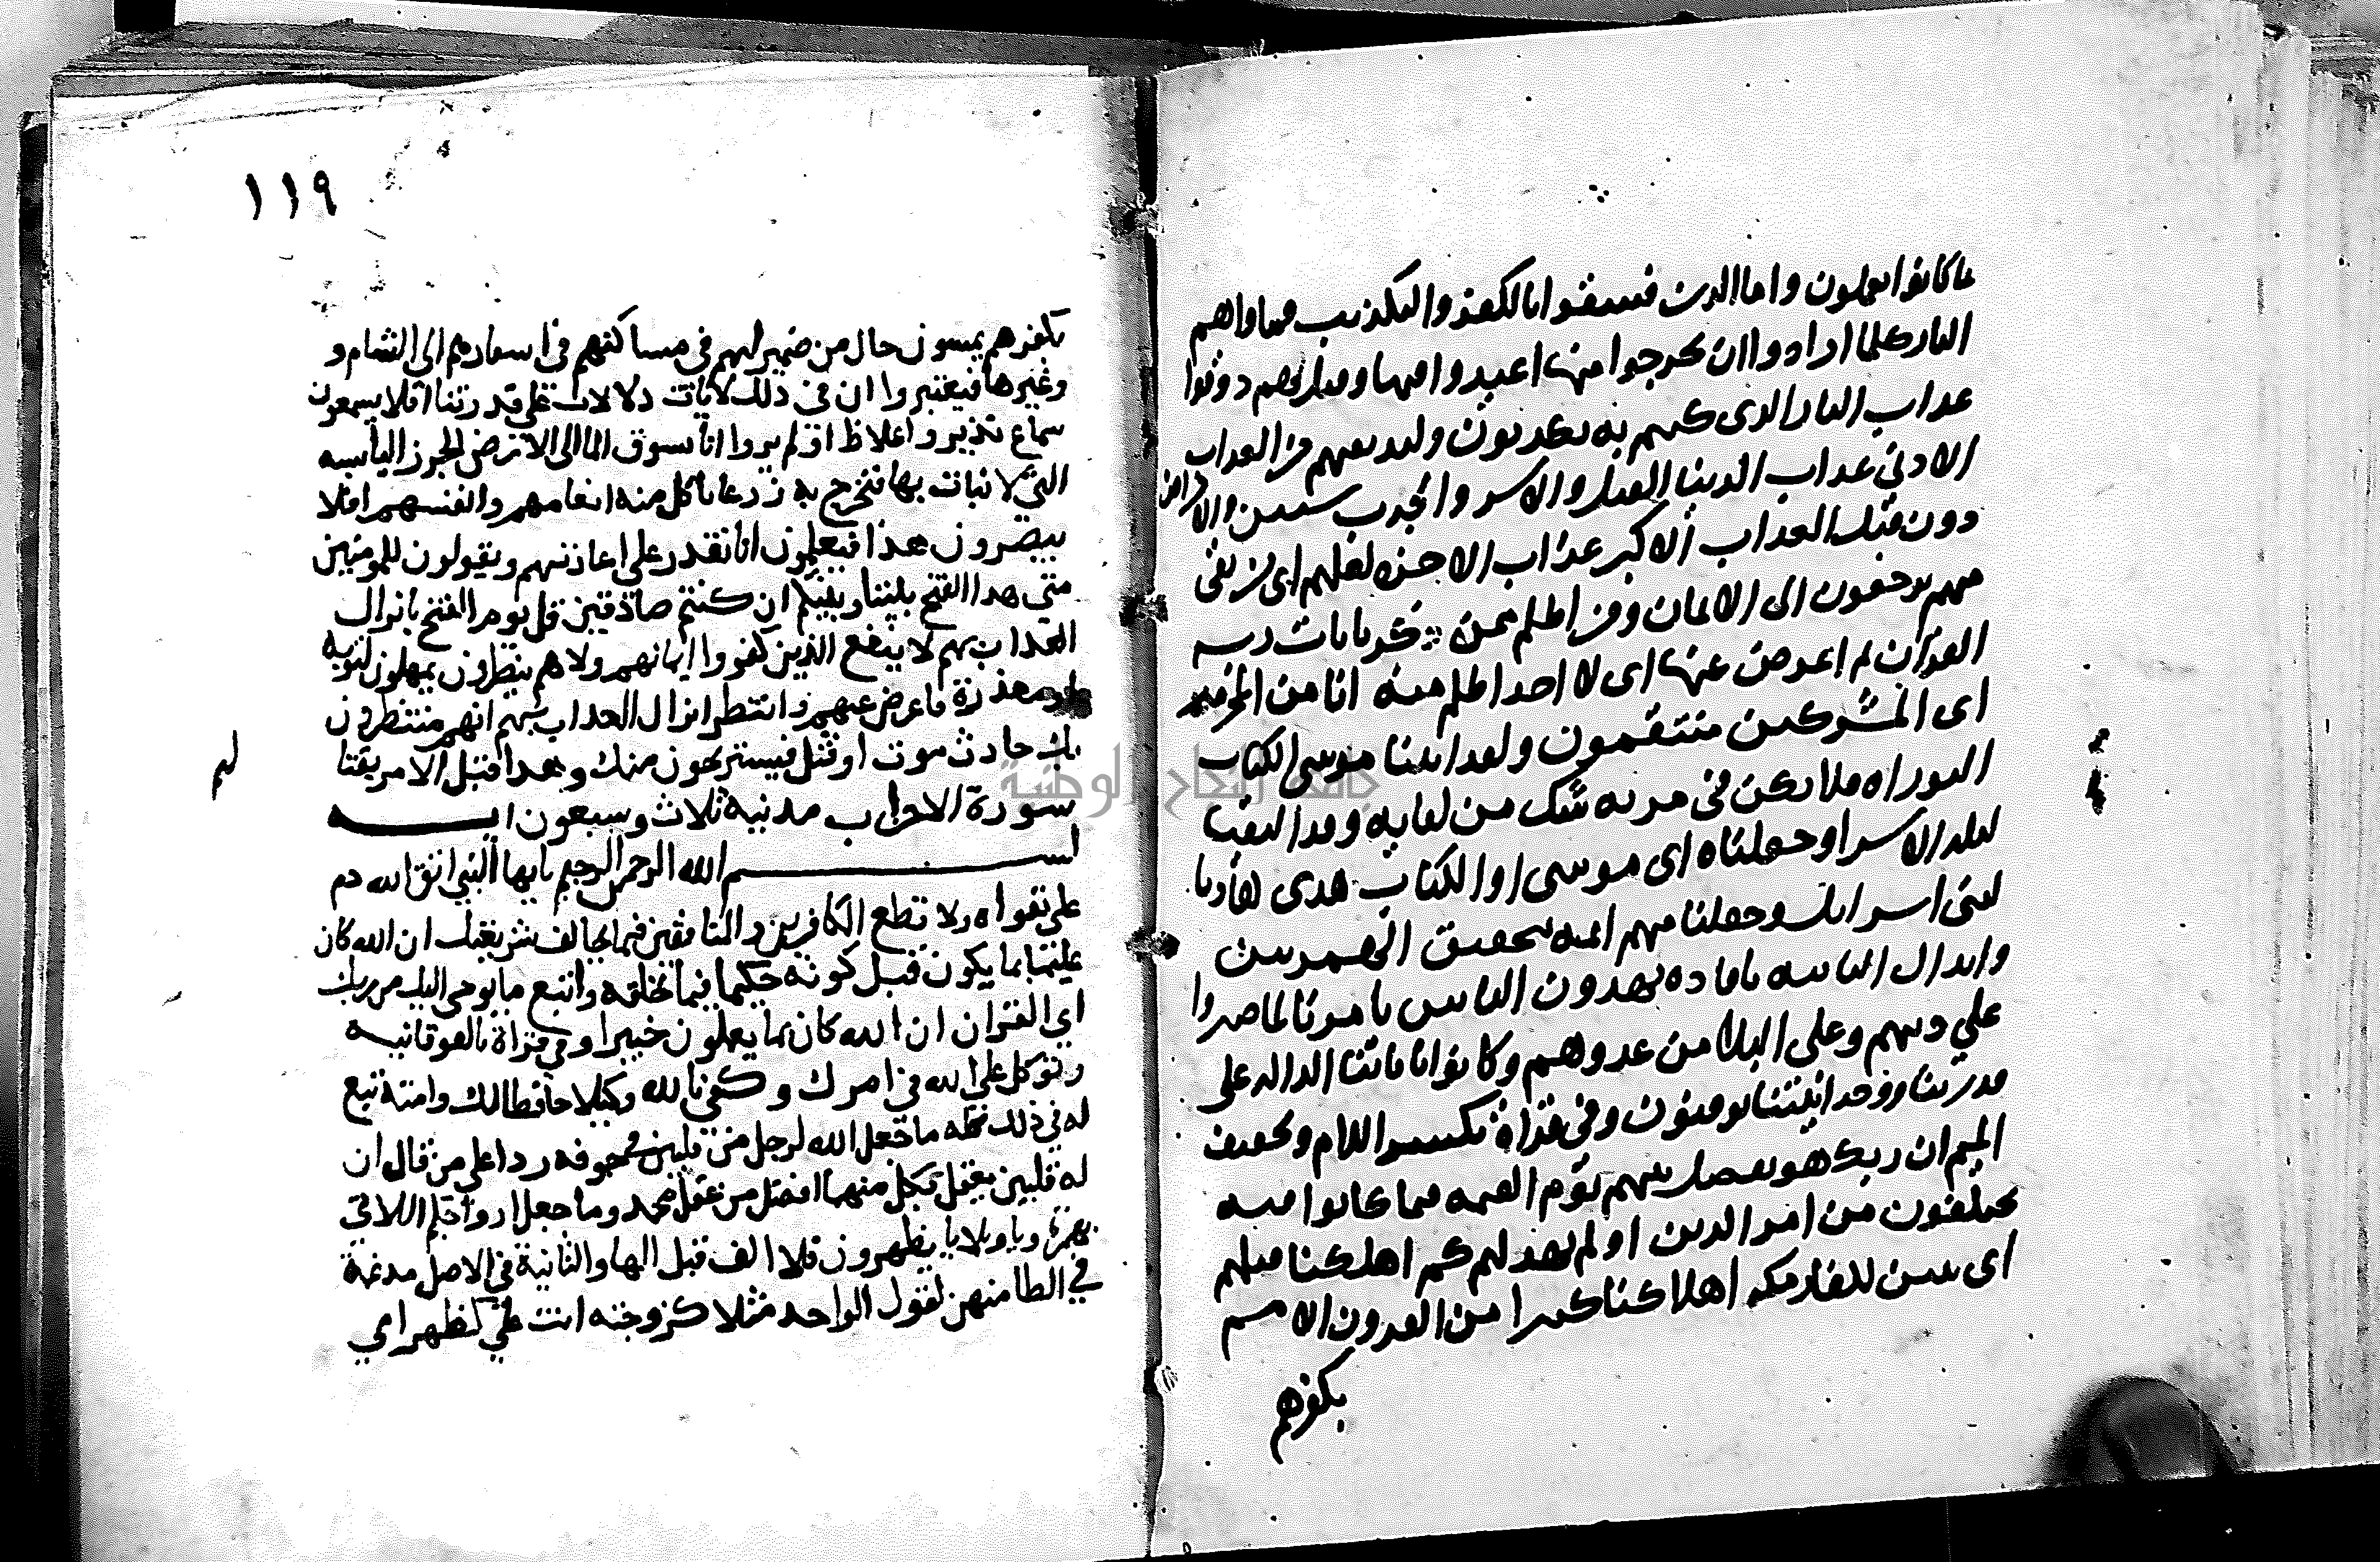 ما كانوا يعملون واما الذين فسقوا بالكفر والتكذيب فماواهم
النار كلما ارادوا ان يخرجوا منها اعيدوا فيها وقيل لهم ذوقوا
عذاب النار الذى كنتم به تكذبون ولنذيقنهم من العذاب
الادنى عذاب الدنيا بالقتل والاسر والجدب سنين والامراض
دون قبل العذاب الاكبر عذاب الاخرة لعلهم اى من بقى
منهم يرجعون الى الايمان ومن اظلم ممن ذكر بايات ربه
القرآن ثم اعرض عنها اى لا احد اظلم منه انا من المجرمين
اى المشركين منتقمون ولقد اتينا موسى الكتاب
التوراة فلا تكن فى مرية شك من لقايه وقد التقيا
ليلة الاسرا وجعلناه اى موسى او الكتاب هدى هاديا
لبنى اسرايل وجعلنا منهم ايمة بتحقيق الهمزتين
وابدال الثانية يا قادة يهدون الناس بامرنا لما صبروا
على دينهم وعلى البلا من عدوهم وكانوا باياتنا الدالة على
قدرتنا ووحدانيتنا يوقنون وفى قراة بكسر اللام وتخفيف
الميم ان ربك هو يفصل بينهم يوم القيمة فيما كانوا فيه
يختلفون من امر الدين اولم يهد لهم كم اهلكنا قبلهم
اى يتبين لكفار مكة اهلاكنا كثيرا من القرون الامم
بكفرهم
١١٩
بكفرهم يمشون حال من ضمير لهم في مساكنهم في اسفارهم الى الشام و
وغيرها فيعتبروا ان في ذلك لايات دلالات على قدرتنا افلا يسمعون
سماع تدبر واتعاظ اولم يروا انا نسوق الما الى الارض الجرز اليابسة
التي لا نبات بها فنخرج به زرعا تاكل منه انعامهم وانفسهم افلا
يبصرون هذا فيعلمون انا نقدر على اعادتهم ويقولون للمومنين
متى هذا الفتح بيننا وبينكم ان كنتم صادقين قل يوم الفتح بانزال
العذاب بهم لا ينفع الذين كفروا ايمانهم ولا هم ينظرون يمهلون لتوبة
او معذرة فاعرض عنهم وانتظر انزال العذاب بهم انهم منتظرون
بك حادث موت او قتل فيستريحون منك وهذا قبل الامر بقتا
لهم
سورة الاحزاب مدنية ثلاث وسبعون اية
بسم الله الرحمن الرحيم يايها النبي اتق الله دم
على تقواه ولا تطع الكافرين والمنافقين فيما يخالف شريعتك ان الله كان
عليما بما يكون قبل كونه حكيما فيما يخلقه واتبع ما يوحى اليك من ربك
اي القران ان الله كان بما يعملون خبيرا وفي قراة بالفوقانية
وتوكل على الله في امرك وكفى بالله وكيلا حافظا لك وامته تبع
له في ذلك كله ما جعل الله لرجل من قلبين في جوفه ردا على من قال ان
له قلبين يعقل بكل منهما افضل من عقل محمد وما جعل ازواجكم اللائي
بهمزة ويا وبلا يا يظهرون بلا الف قبل الها والثانية في الاصل مدغمة
في الظا منهن لقول الواحد مثلا لزوجته انت علي كظهر امي
جامعة النجاح الوطنية